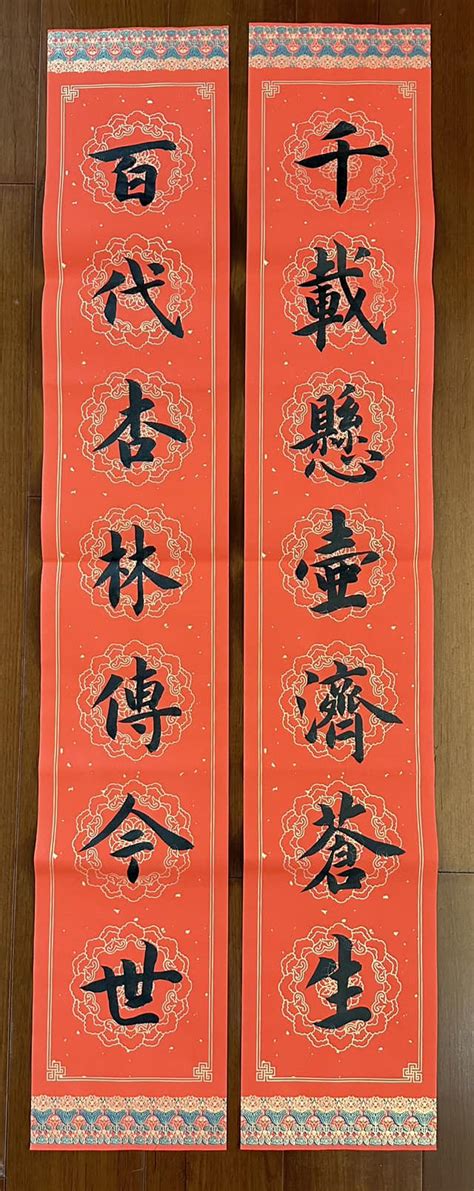 千載懸壺濟蒼生
百代杏林傳今世